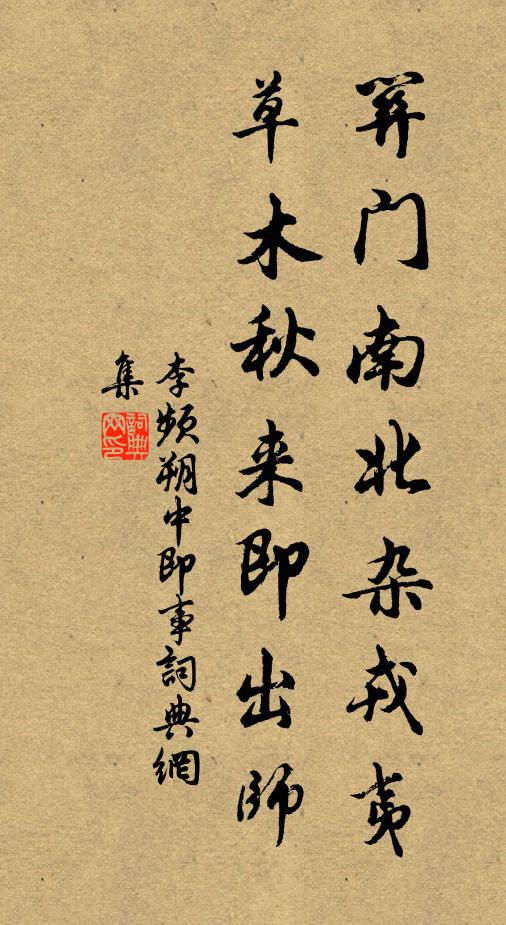 关门南北杂戎夷
草木秋来即出師
李频朔中即事詞典網
集
詞典
网印